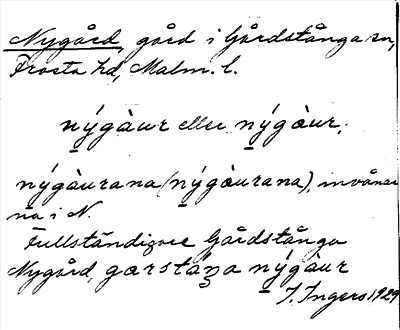 Nygård, gård i Gårdstånga sn,
Frosta hd, Malm. l.
nýgàur eller ný̱gàur;
nýgàurana (ný̱gàurana), invånar-
na i N.
Fullständigare Gårdstånga
Nygård, gærstáŋa ný̱gàur
I. Ingers 1929